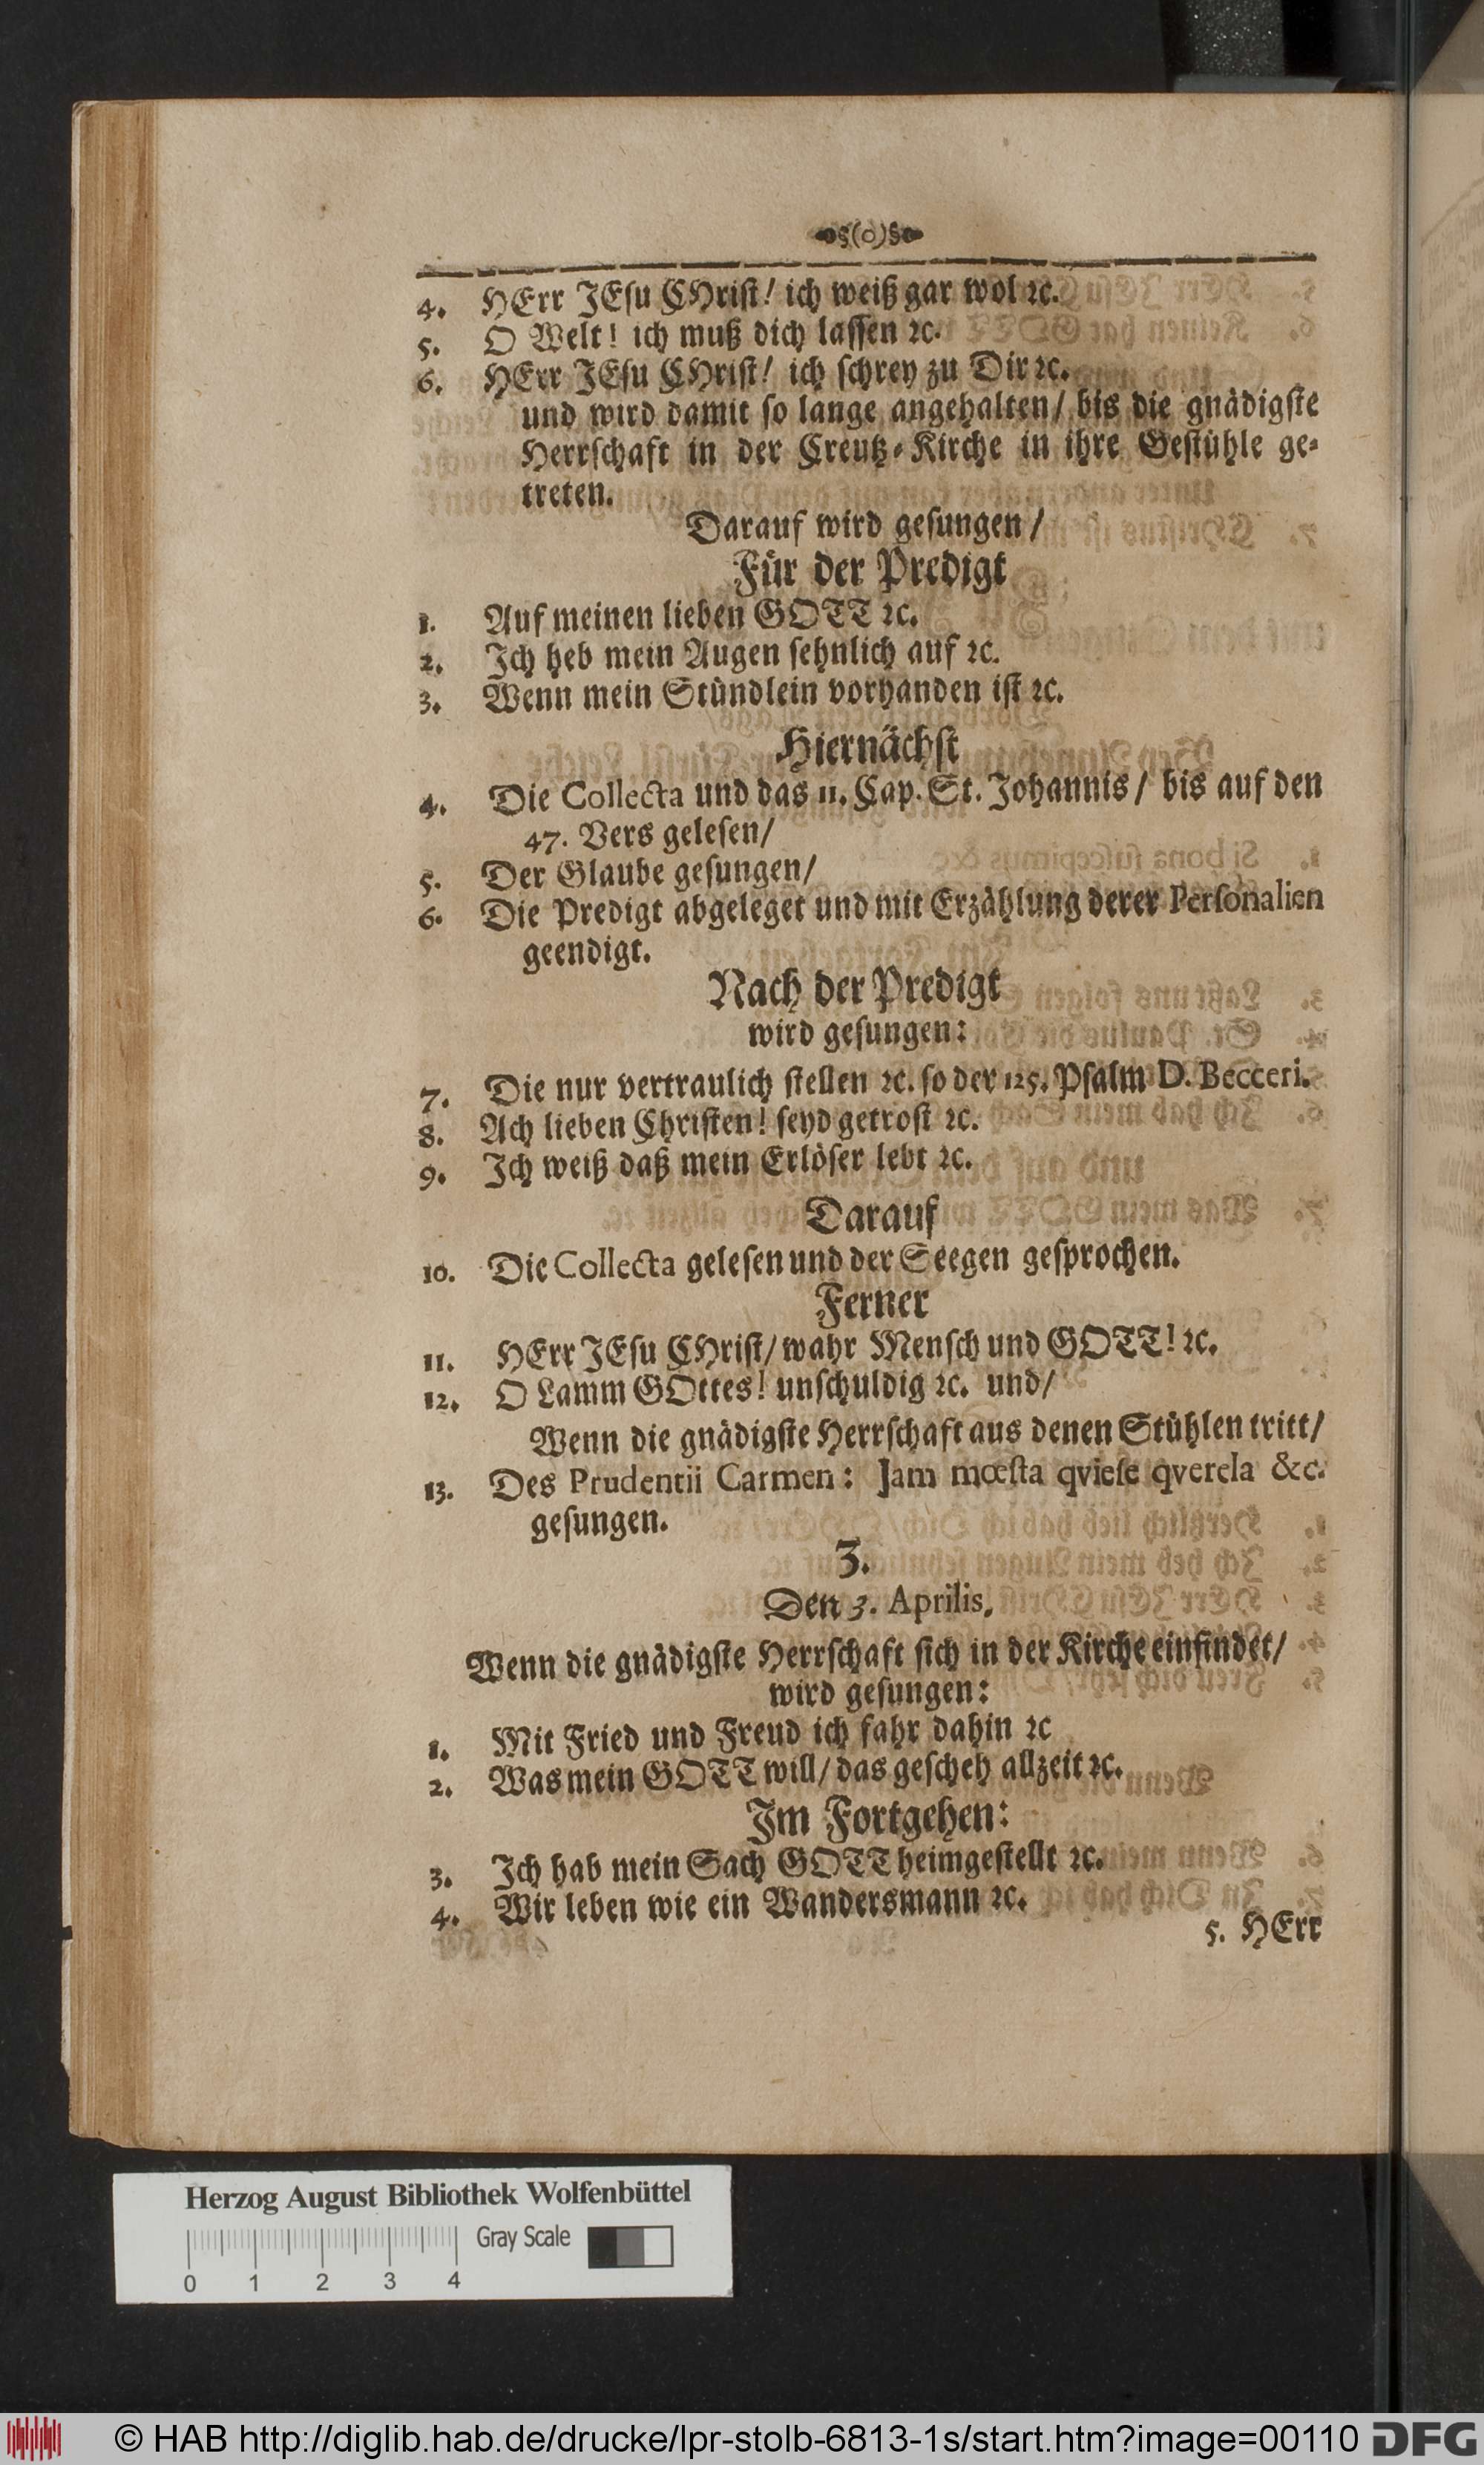 (o)
4. HErr JEsu CHrist! ich weiß gar wol ꝛc.
5. O Welt! ich muß dich lassen ꝛc.
6. HErr JEsu CHrist! ich schrey zu Dir ꝛc.
und wird damit so lange angehalten/ bis die gnädigste
Herrschaft in der Creutz-Kirche in ihre Gestühle ge-
treten.
Darauf wird gesungen/
Für der Predigt
1. Auf meinen lieben GOTT ꝛc.
2. Jch heb mein Augen sehnlich auf ꝛc.
3. Wenn mein Stündlein vorhanden ist ꝛc.
Hiernächst
4. Die Collecta und das 11. Cap. St. Johannis/ bis auf den
47. Vers gelesen/
5. Der Glaube gesungen/
6. Die Predigt abgeleget und mit Erzählung derer Personalien
geendigt.
Nach der Predigt
wird gesungen:
7. Die nur vertraulich stellen ꝛc. so der 125. Psalm D. Becceri.
8. Ach lieben Christen! seyd getrost ꝛc.
9. Jch weiß daß mein Erlöser lebt ꝛc.
Darauf
10. Die Collecta gelesen und der Seegen gesprochen.
Ferner
11. HErr JEsu CHrist/ wahr Mensch und GOTT! ꝛc.
12. O Lamm GOttes! unschuldig ꝛc. und/
Wenn die gnädigste Herrschaft aus denen Stühlen tritt/
13. Des Prudentii Carmen: Jam mœsta qviese qverela &c.
gesungen.
3.
Den 3. Aprilis,
Wenn die gnädigste Herrschaft sich in der Kirche einfindet/
wird gesungen:
1. Mit Fried und Freud ich fahr dahin ꝛc
2. Was mein GOTT will/ das gescheh allzeit ꝛc.
Jm Fortgehen:
3. Jch hab mein Sach GOTT heimgestellt ꝛc.
4. Wir leben wie ein Wandersmann ꝛc.
5. HErr
Herzog August Bibliothek Wolfenbüttel
Gray Scale
0 1 2 3 4
© HAB http://diglib.hab.de/drucke/lpr-stolb-6813-1s/start.htm?image=00110 DFG